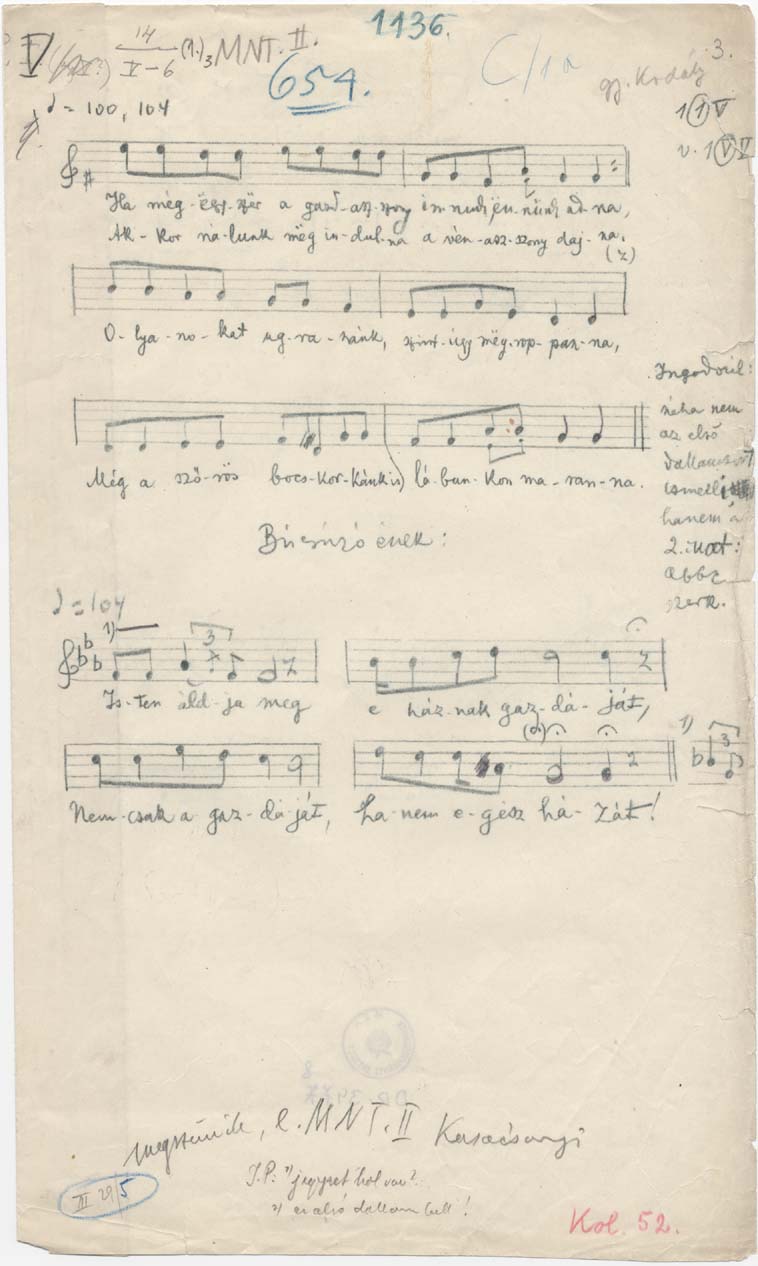 1136.
V 14 V-6 (1.)3 MNT. II.
654.
C/1a
3.
gy. Kodály
♩ = 100, 104
1 ① V
v. 1 Ⓥ V
Ha még-ëgy-szër a gazd-asz-szony in-nunk, ën-nünk ad-na,
Ak-kor ná-lunk még in-dul-na a vén-asz-szony daj-na.
(z)
O-lya-no-kat ug-ra-nánk, szint-úgy mëg-rop-pan-na,
Még a sző-rös bocs-kor-kánk is) lá-bun-kon ma-ran-na.
néha nem
az első
hanem a
2. ikat:
abbc
szerk.
Búcsúzó ének:
♩ = 104
1) 3
Is-ten áld-ja meg e ház-nak gaz-dá-ját,
1) 3
Nem-csak a gaz-dá-ját, ha-nem e-gész há-zát!
megszűnik, l. MNT. II Karácsonyi
J.P.: 1) jegyzet hol van?
2) ez alsó dallam kell!
III 29/5
Kol. 52.